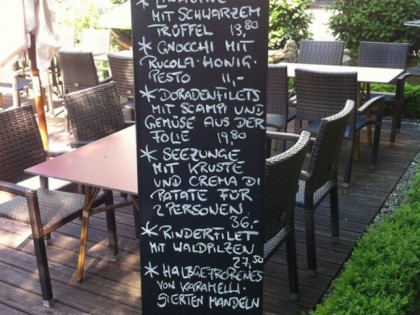 MIT SCHWARZEM
TRÜFFEL 13,80
* GNOCCHI MIT
RUCOLA-HONIG-
PESTO 11,-
* DORADENFILETS
MIT SCAMPI UND
GEMÜSE AUS DER
FOLIE 19,80
* SEEZUNGE
MIT KRUSTE
UND CREMA DI
PATATE FÜR
2 PERSONEN
36,-
* RINDERFILET
MIT WALDPILZEN
27,50
* HALBGEFRORENES
VON KARAMELLI-
SIERTEN MANDELN